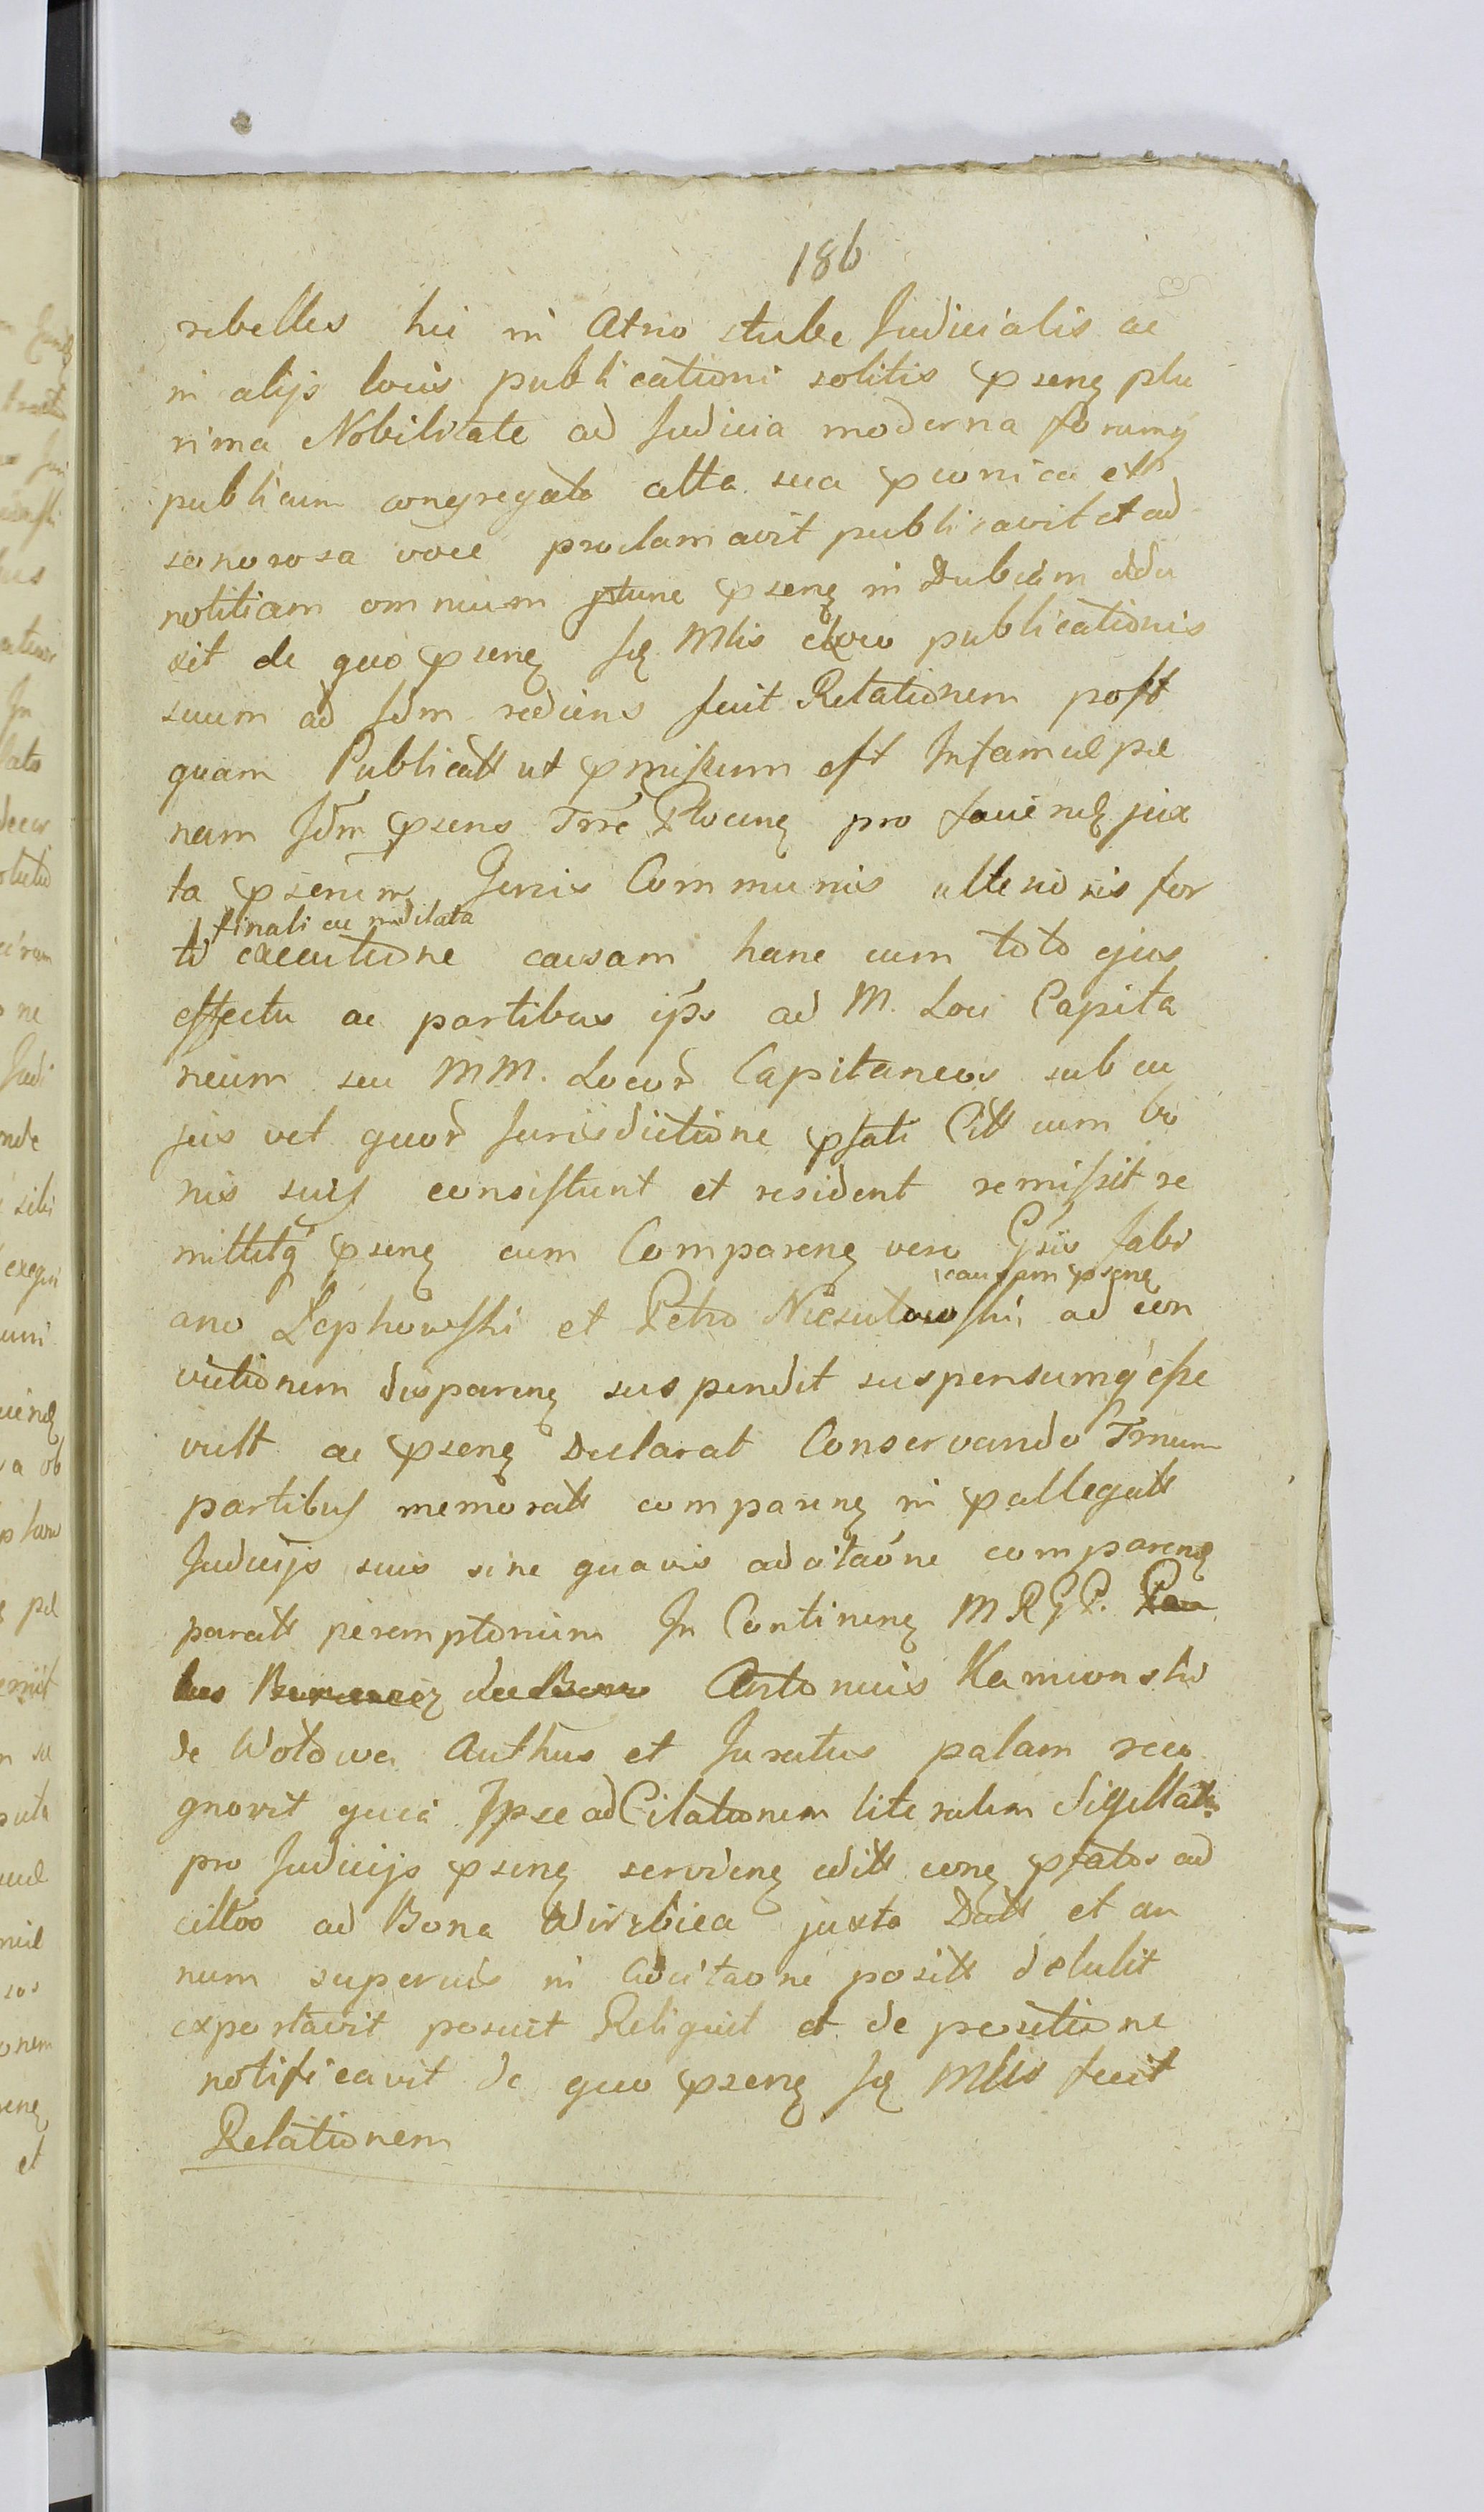 186
rebelles hic in Atrio stube Judicialis ac
in alijs locis publicationi solitis psenz plu
rima Nobilitate ad Judicia moderna forumq
publicum congregata alta sua pconica et
sonorosa voce proclamavit publicavit et ad
notitiam omnium ptunc psenz in Dubiam
xit de quo psenz publicationis
suum ad Jdm rediens fecit Relationem post
quam Publicatt ut pmissum est Infamie pae
nam Jdm psens Trre Plocenz pro jux
ta psentem Juris Communis ulterioris for
finali ac
ti executione causam hanc cum toto ejus
effectu ac partibus ips ad M. Loci Capita
neum seu MM. Locor Capitaneos sub cu
jus vel quor Jurisdictione pfati Citt cum bo
nis suis consistunt et resident remissit re
mittitq psenz cum Comparenz vero Gsis Fabi
causam psenz
ano Lephowski et Petro Niesulowski ad con
victionem disparenz suspendit suspensumq esse
vult ac psenz Declarat Conservando Trnum
partibus memoratt comparenz in pallegatt
Judicijs suis sine quavis adcitaone comparenz
paratt peremptorium In Continenz MRGP.
Antonius Kamionski
de Wolowa Authus et Juratus palam reco
gnovit quia Ipse ad Citationem literalem Sigillatam
pro Judicijs psenz servienz editt conz pfatos ad
cittos ad Bona Wirzbica juxta Datt et an
num superius in Adcitaone positt detulit
exportavit posuit Reliquit et de positione
notificavit de quo psenz fecit
Relationem